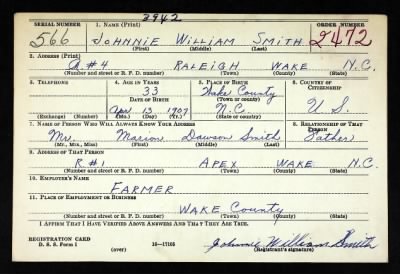 3942
SERIAL NUMBER 1. NAME (Print) ORDER NUMBER
566 JOHNNIE WILLIAM SMITH 2472
(First) (Middle) (Last)
2. ADDRESS (Print)
R#4 RALEIGH WAKE N.C.
(Number and street or R. F. D. number) (Town) (County) (State)
3. TELEPHONE 4. AGE IN YEARS 5. PLACE OF BIRTH 6. COUNTRY OF CITIZENSHIP
33 Wake County
DATE OF BIRTH (Town or county)
Apr 13 1907 N.C. U S.
(Exchange) (Number) (Mo.) (Day) (Yr.) (State or country)
7. NAME OF PERSON WHO WILL ALWAYS KNOW YOUR ADDRESS 8. RELATIONSHIP OF THAT PERSON
Mr. Marion Dawson Smith Father
(Mr., Mrs., Miss) (First) (Middle) (Last)
9. ADDRESS OF THAT PERSON
R#1 APEX WAKE N.C.
(Number and street or R. F. D. number) (Town) (County) (State)
10. EMPLOYER'S NAME
FARMER
11. PLACE OF EMPLOYMENT OR BUSINESS
WAKE County
(Number and street or R. F. D. number) (Town) (County) (State)
I AFFIRM THAT I HAVE VERIFIED ABOVE ANSWERS AND THAT THEY ARE TRUE.
REGISTRATION CARD
D. S. S. Form 1 (over) 16—17105 Johnnie William Smith
(Registrant's signature)